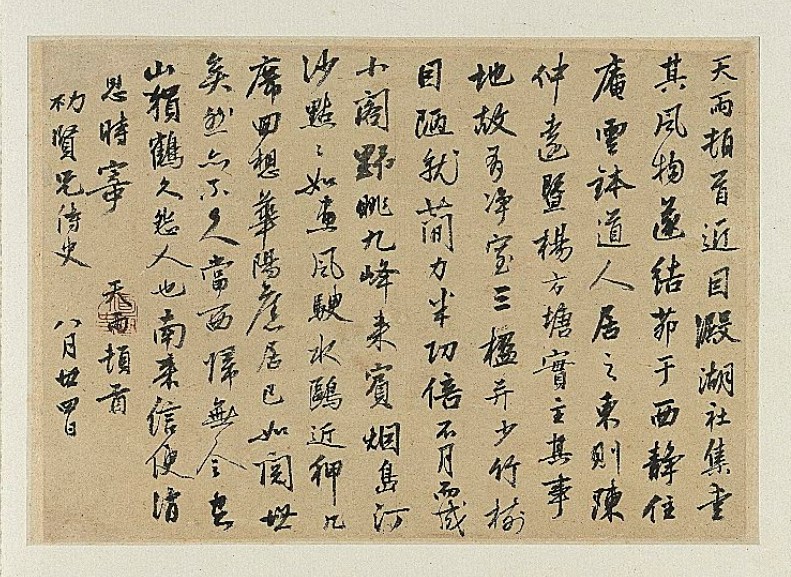 天雨頓首近因澱湖社集重
其風物遂結茆于西靜住
庵雲鉢道人居之東則陳
仲遠暨楊方塘實主其事
地故有淨室三楹并少竹樹
因陋就簡力半功倍不月而成
小閣野眺九峰来賓烟島汀
沙點點如畫風騣水鷗近狎几
席回想華陽舊居已如閱世
矣然亦不久當西歸無令空
山猨鶴久愁人也南来信便惟
恩時寧 天雨頓首
初賢兄侍史 八月廿四日